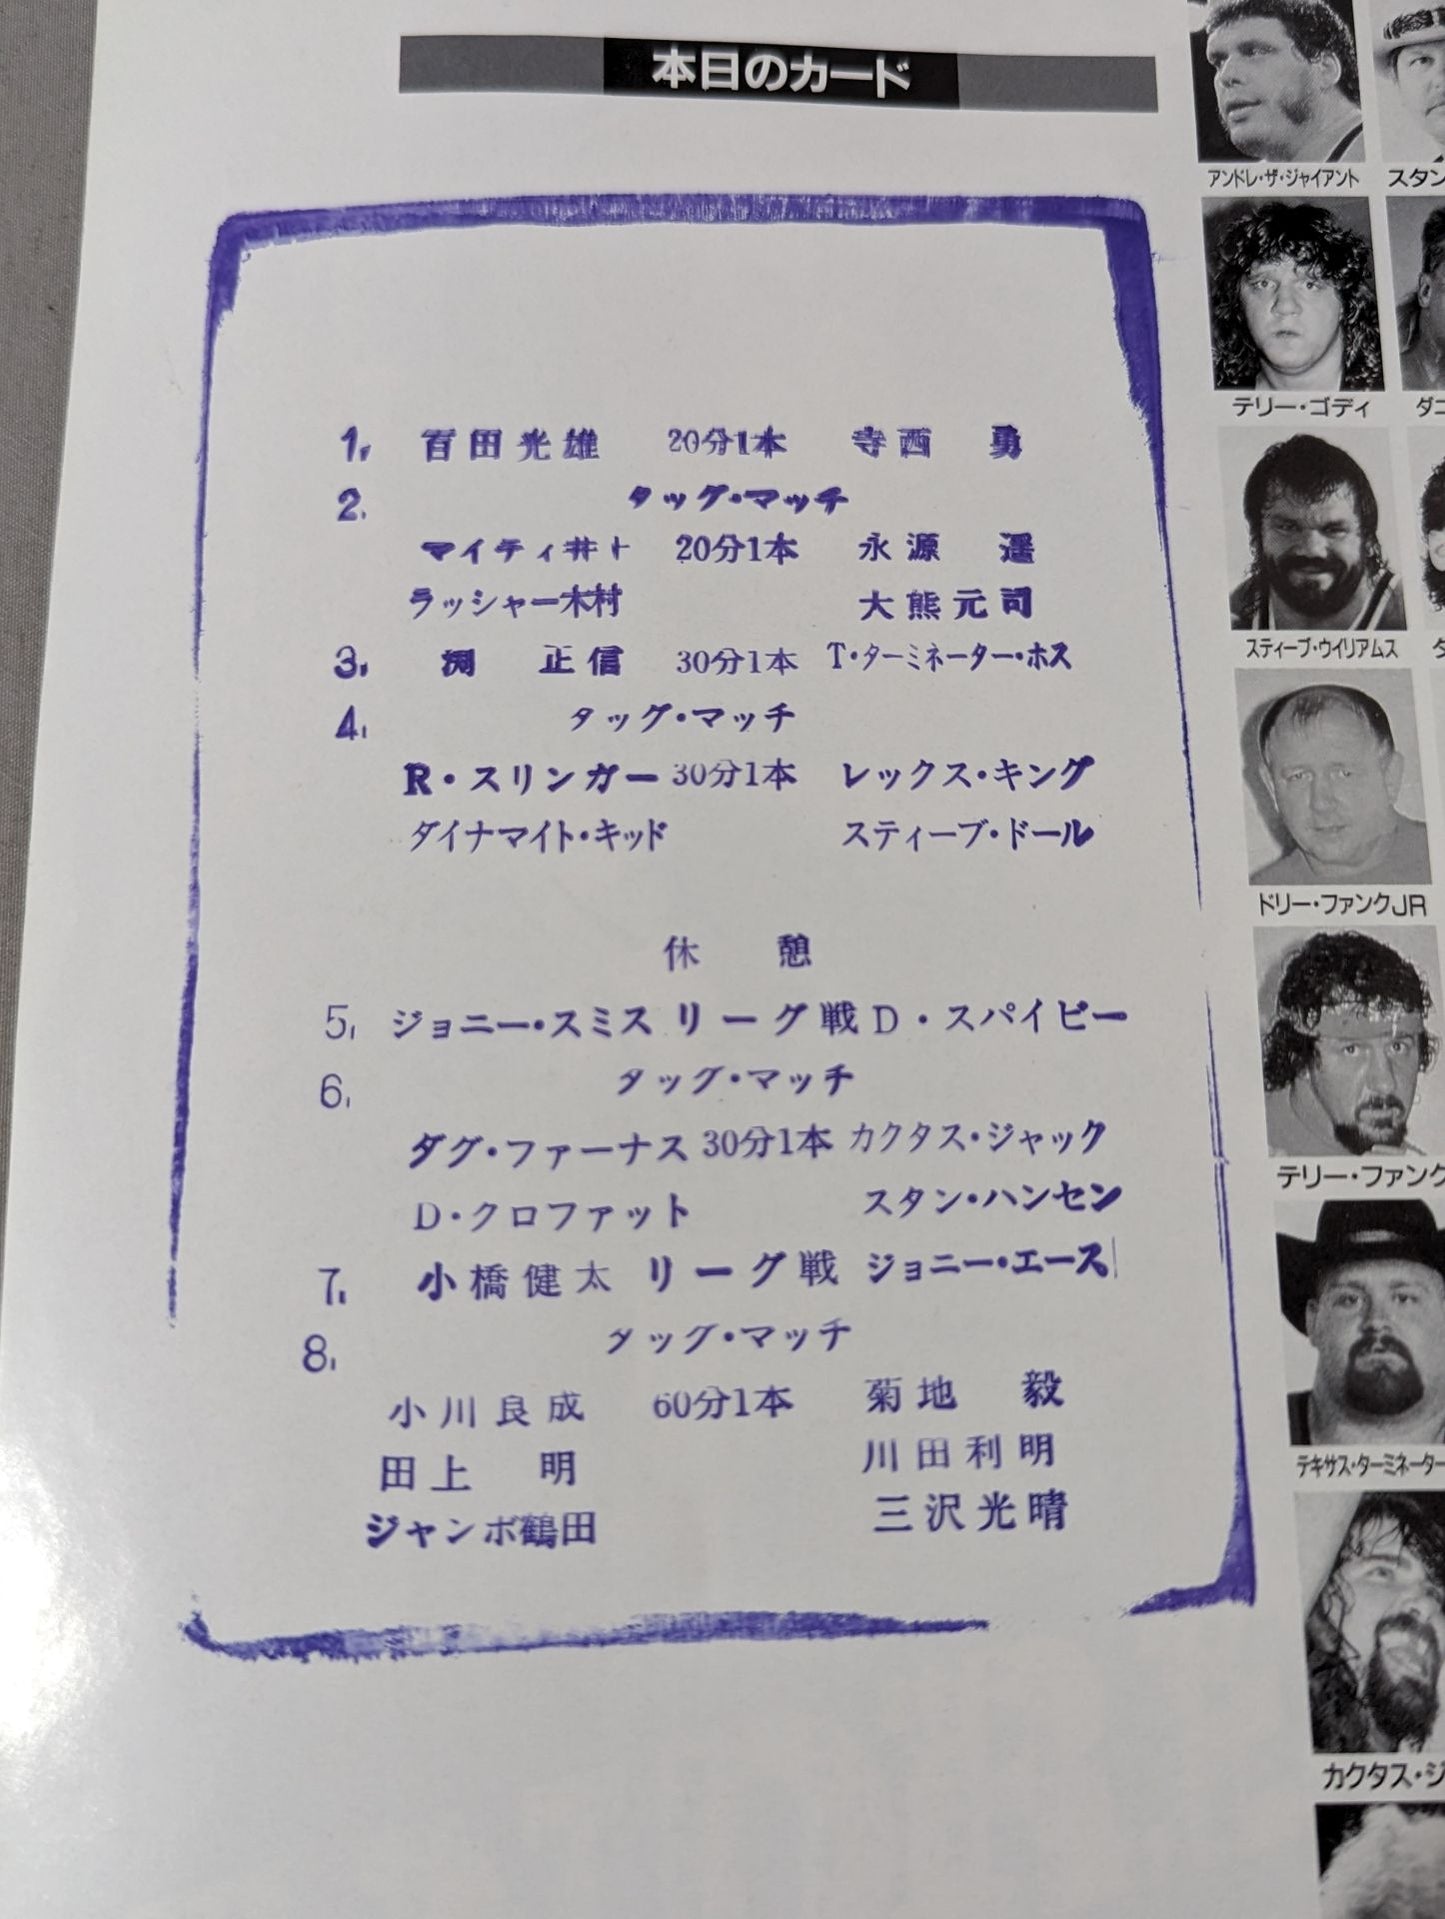 本日のカード
1, 百田光雄 20分1本 寺西 勇
2, タッグ・マッチ
マイティ井上 20分1本 永源 遥
ラッシャー木村 大熊元司
3, 渕 正信 30分1本 T・ターミネーター・ホス
4, タッグ・マッチ
R・スリンガー 30分1本 レックス・キング
ダイナマイト・キッド スティーブ・ドール
休 憩
5, ジョニー・スミス リーグ戦 D・スパイビー
6, タッグ・マッチ
ダグ・ファーナス 30分1本 カクタス・ジャック
D・クロファット スタン・ハンセン
7, 小橋健太 リーグ戦 ジョニー・エース
8, タッグ・マッチ
小川良成 60分1本 菊地 毅
田上 明 川田利明
ジャンボ鶴田 三沢光晴
アンドレ・ザ・ジャイアント スタン
テリー・ゴディ ダニ
スティーブ・ウイリアムス ダ
ドリー・ファンクJR
テリー・ファンク
テキサス・ターミネーター
カクタス・ジ